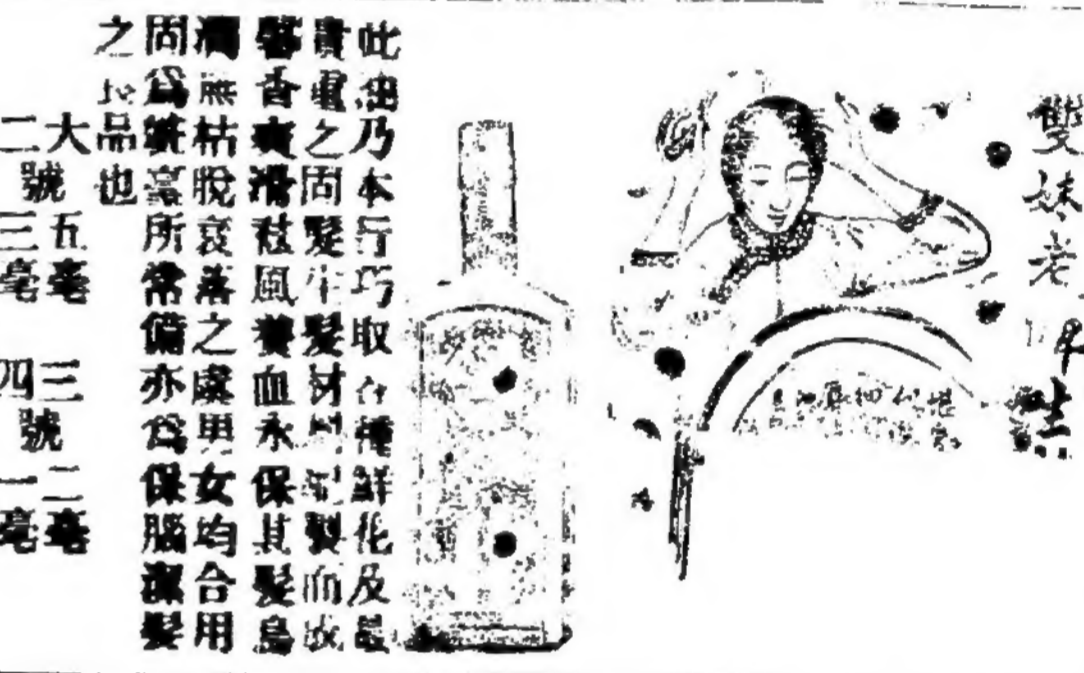 雙妹老
此油乃本行巧取各種鮮花及最
貴重之固髮生髮材料製而成
馨香爽滑祛風養血永保其髮烏
潤無枯脫衰落之處男女均合用
固為粧臺所常備亦為保腦潔髮
之良品也
大號五毫 三號二毫
二號三毫 四號一毫